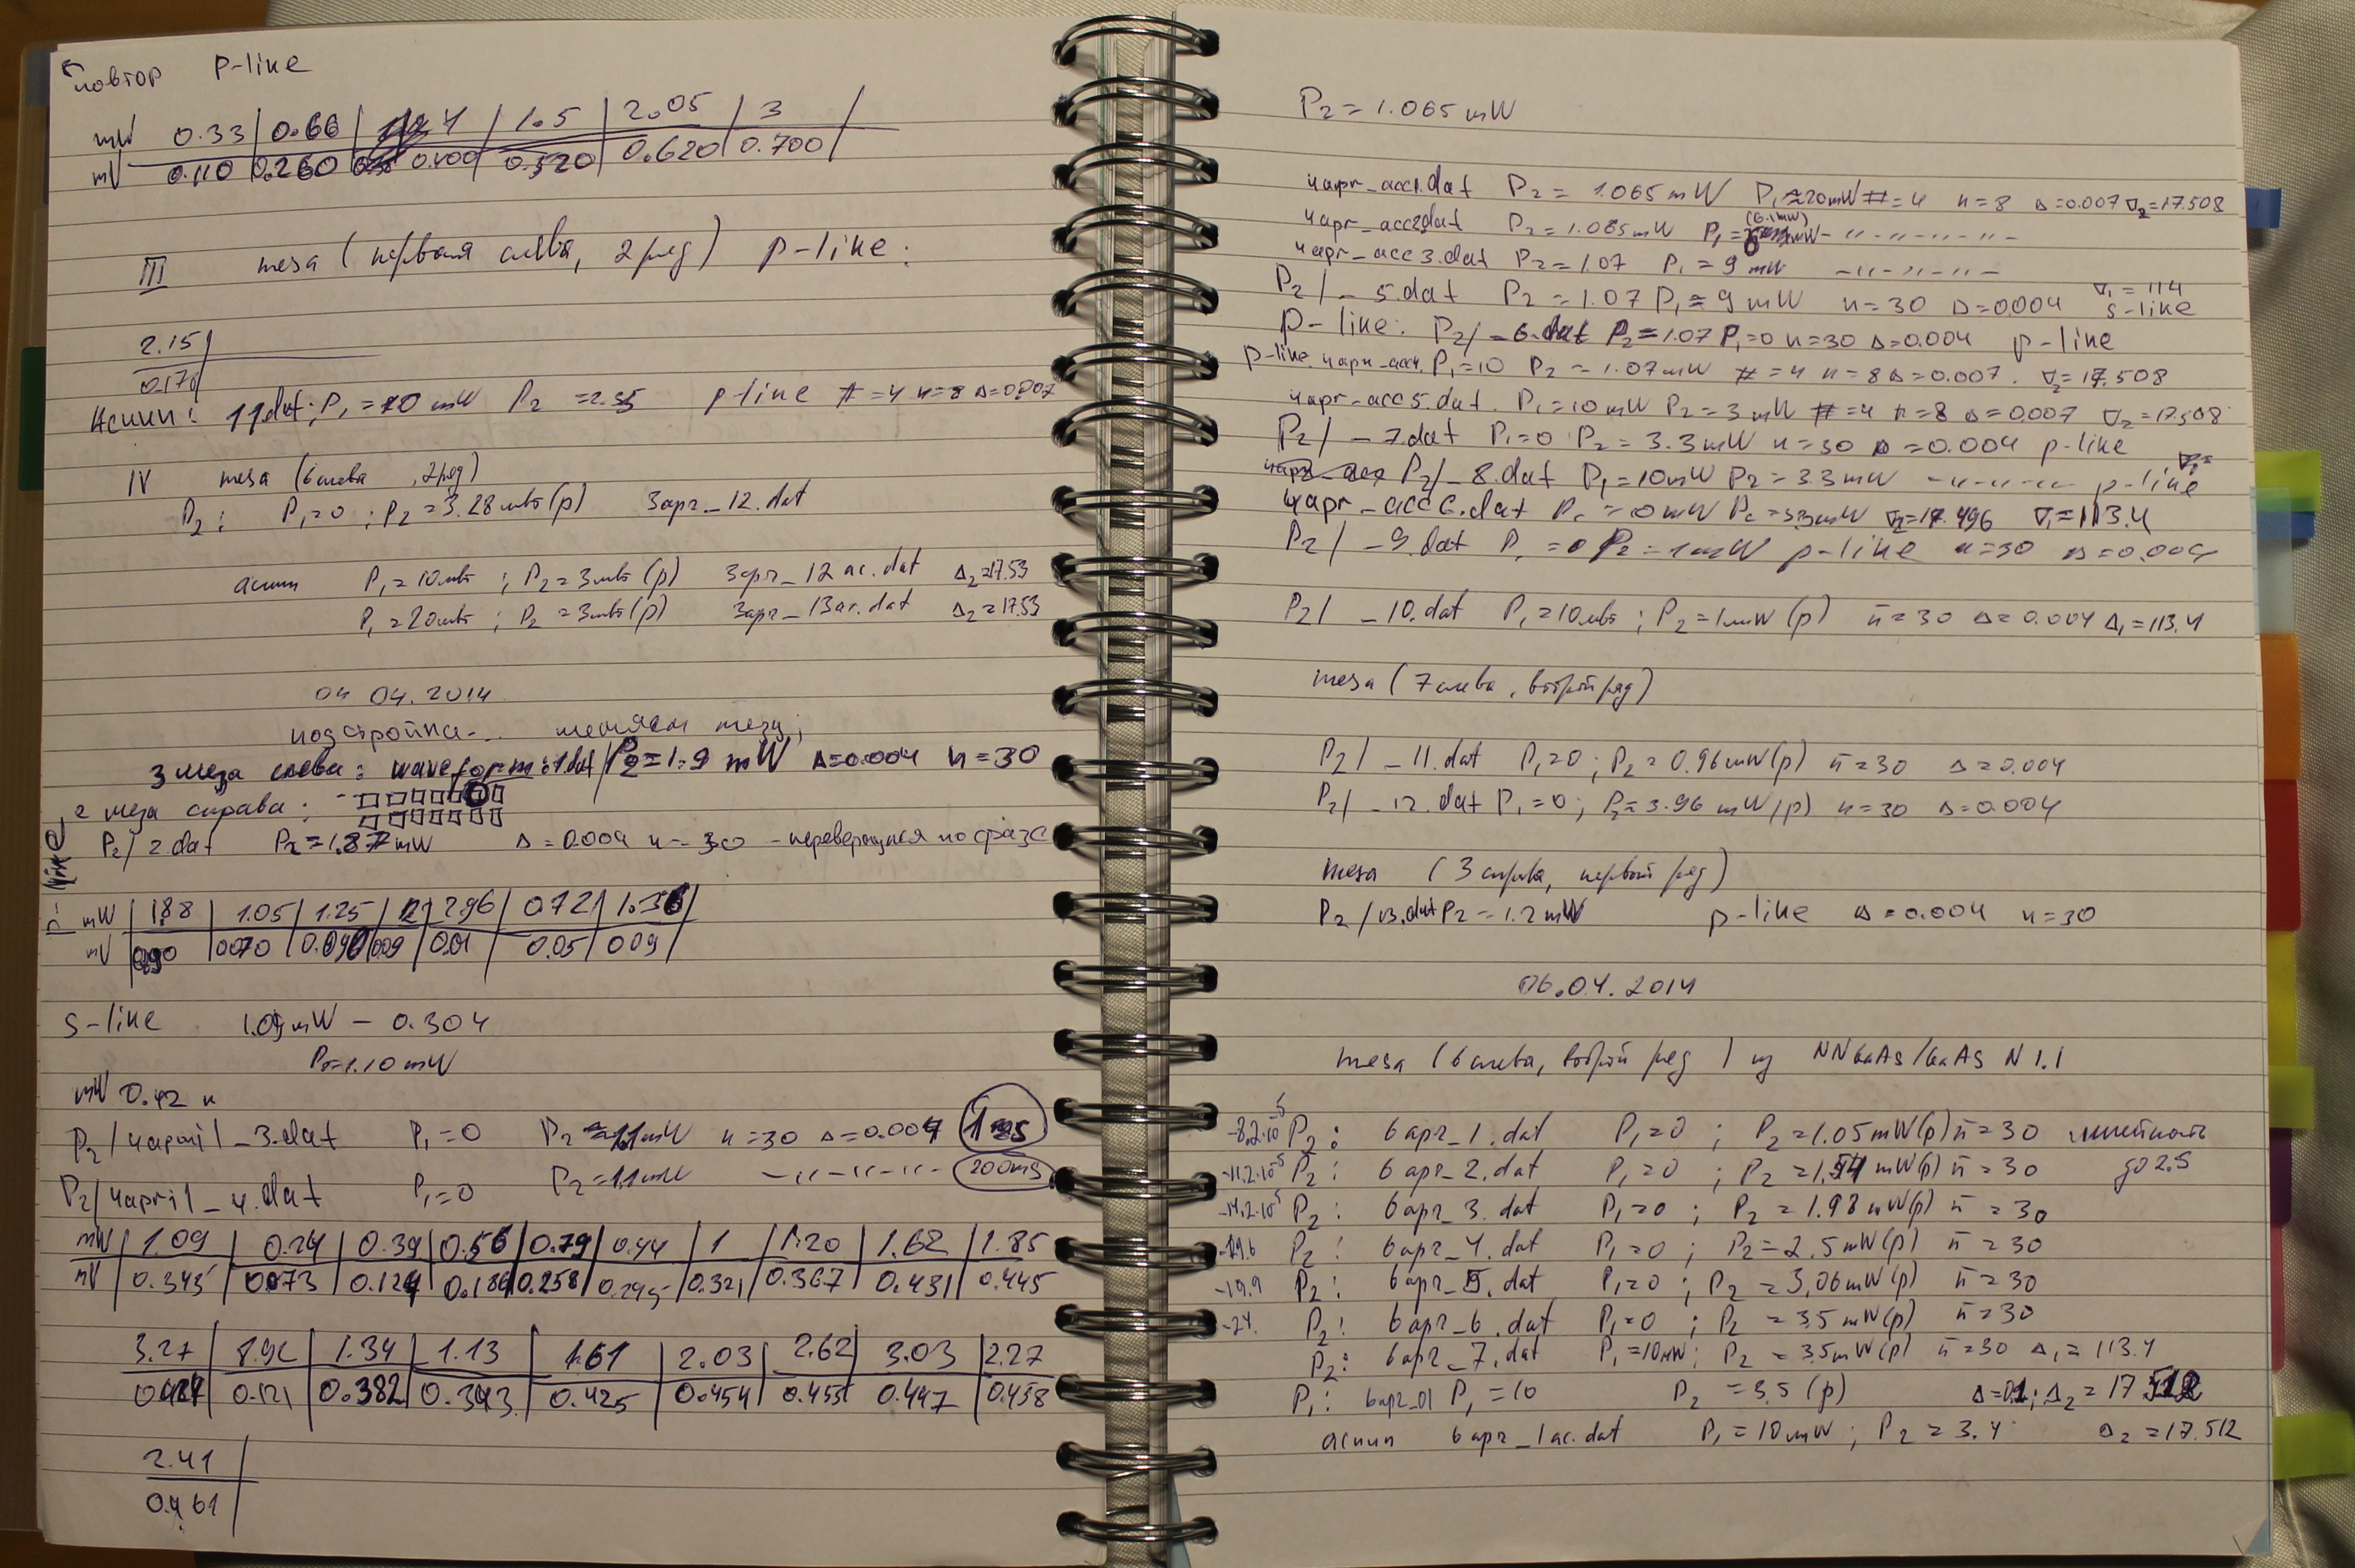 повтор p-line
mW 0.33 0.66 1.5 2.05 3
mV 0.110 0.260 0.400 0.520 0.620 0.700
III mesa (первая слева, 2 ряд) p-line:
2.15
0.170
Асцил: 11.dat; P₁ = 10 mW P₂ = p-line # = 4 n = 8 Δ = 0.007
IV mesa (6 слева, 2 ряд)
P₂: P₁ = 0; P₂ = 3.28 мвт (p) 3apr_12.dat
асцил P₁ = 10 мвт; P₂ = 3 мвт (p) 3apr_12ac.dat Δ₂ = 17.53
P₁ = 20 мвт; P₂ = 3 мвт (p) 3apr_13ac.dat Δ₂ = 17.53
04 04.2014
подстройка... меняем мезу;
3 меза слева: waveform:1.dat/P₂ = 1.9 mW Δ = 0.004 n = 30
2 меза справа:
P₂/2.dat P₂ = 1.87 mW Δ = 0.004 n = 30 - перевернулся по фазе
p-line
mW 1.88 1.05 1.25 2.96 0.72 1.36
mV 0.090 0.070 0.090 0.09 0.01 0.05 0.09
s-line 1.09 mW - 0.304
P₂ = 1.10 mW
mW 0.42 и
P₂/4april_3.dat P₁ = 0 P₂ = 1.1 mW n = 30 Δ = 0.004
P₂/4april_4.dat P₁ = 0 P₂ = 1.1 mW -"-"-"- 200ms
mW 1.09 0.24 0.39 0.56 0.79 0.94 1 1.20 1.62 1.85
mV 0.345 0.073 0.124 0.186 0.258 0.295 0.321 0.367 0.431 0.445
3.27 1.34 1.13 1.61 2.03 2.62 3.03 2.27
0.121 0.382 0.343 0.425 0.454 0.455 0.447 0.458
2.41
0.461
P₂ = 1.065 mW
4apr_acc1.dat P₂ = 1.065 mW P₁ ≈ 20 mW # = 4 n = 8 Δ = 0.007 ∇₂ = 17.508
4apr_acc2.dat P₂ = 1.065 mW P₁ = (6.1 mW) -"-"-"-"-
4apr_acc3.dat P₂ = 1.07 P₁ = 9 mW -"-"-"-
P₂/_5.dat P₂ = 1.07 P₁ = 9 mW n = 30 Δ = 0.004 ∇₁ = 114 s-line
p-line: P₂/_6.dat P₂ = 1.07 P₁ = 0 n = 30 Δ = 0.004 p-line
p-line. 4apr_acc4. P₁ = 10 P₂ = 1.07 mW # = 4 n = 8 Δ = 0.007. ∇₂ = 17.508
4apr_acc5.dat. P₁ = 10 mW P₂ = 3 mW # = 4 n = 8 Δ = 0.007 ∇₂ = 17.508
P₂/_7.dat P₁ = 0 P₂ = 3.3 mW n = 30 Δ = 0.004 p-line
P₂/_8.dat P₁ = 10 mW P₂ = 3.3 mW -"-"-"- p-line
4apr_acc6.dat P₁ = 10 mW P₂ = 3.3 mW ∇₂ = 17.496 ∇₁ = 113.4
P₂/_9.dat P₁ = 0 P₂ = 1 mW p-line n = 30 Δ = 0.004
P₂/_10.dat P₁ = 10 мвт; P₂ = 1 mW (p) n = 30 Δ = 0.004 Δ₁ = 113.4
mesa (7 слева, второй ряд)
P₂/_11.dat P₁ = 0; P₂ = 0.96 mW (p) n = 30 Δ = 0.004
P₂/_12.dat P₁ = 0; P₂ = 3.96 mW (p) n = 30 Δ = 0.004
mesa (3 справа, первый ряд)
P₂/13.dat P₂ = 1.2 mW p-line Δ = 0.004 n = 30
06.04.2014
mesa (6 слева, второй ряд) из NNGaAs/GaAs N 1.1
-8.2·10⁻⁵ P₂: 6apr_1.dat P₁ = 0; P₂ = 1.05 mW (p) n = 30 линейность
-11.2·10⁻⁵ P₂: 6apr_2.dat P₁ = 0; P₂ = 1.54 mW (p) n = 30 до 2.5
-14.2·10⁻⁵ P₂: 6apr_3.dat P₁ = 0; P₂ = 1.98 mW (p) n = 30
P₂: 6apr_4.dat P₁ = 0; P₂ = 2.5 mW (p) n = 30
-19.9 P₂: 6apr_5.dat P₁ = 0; P₂ = 3,06 mW (p) n = 30
-24. P₂: 6apr_6.dat P₁ = 0; P₂ = 3.5 mW (p) n = 30
P₂: 6apr_7.dat P₁ = 10 mW; P₂ = 3.5 mW (p) n = 30 Δ₁ = 113.4
P₁: 6apr_01 P₁ = 10 P₂ = 3.5 (p) Δ = 0.1; Δ₂ = 17.512
асцил 6apr_1ac.dat P₁ = 10 mW; P₂ = 3.4 Δ₂ = 17.512